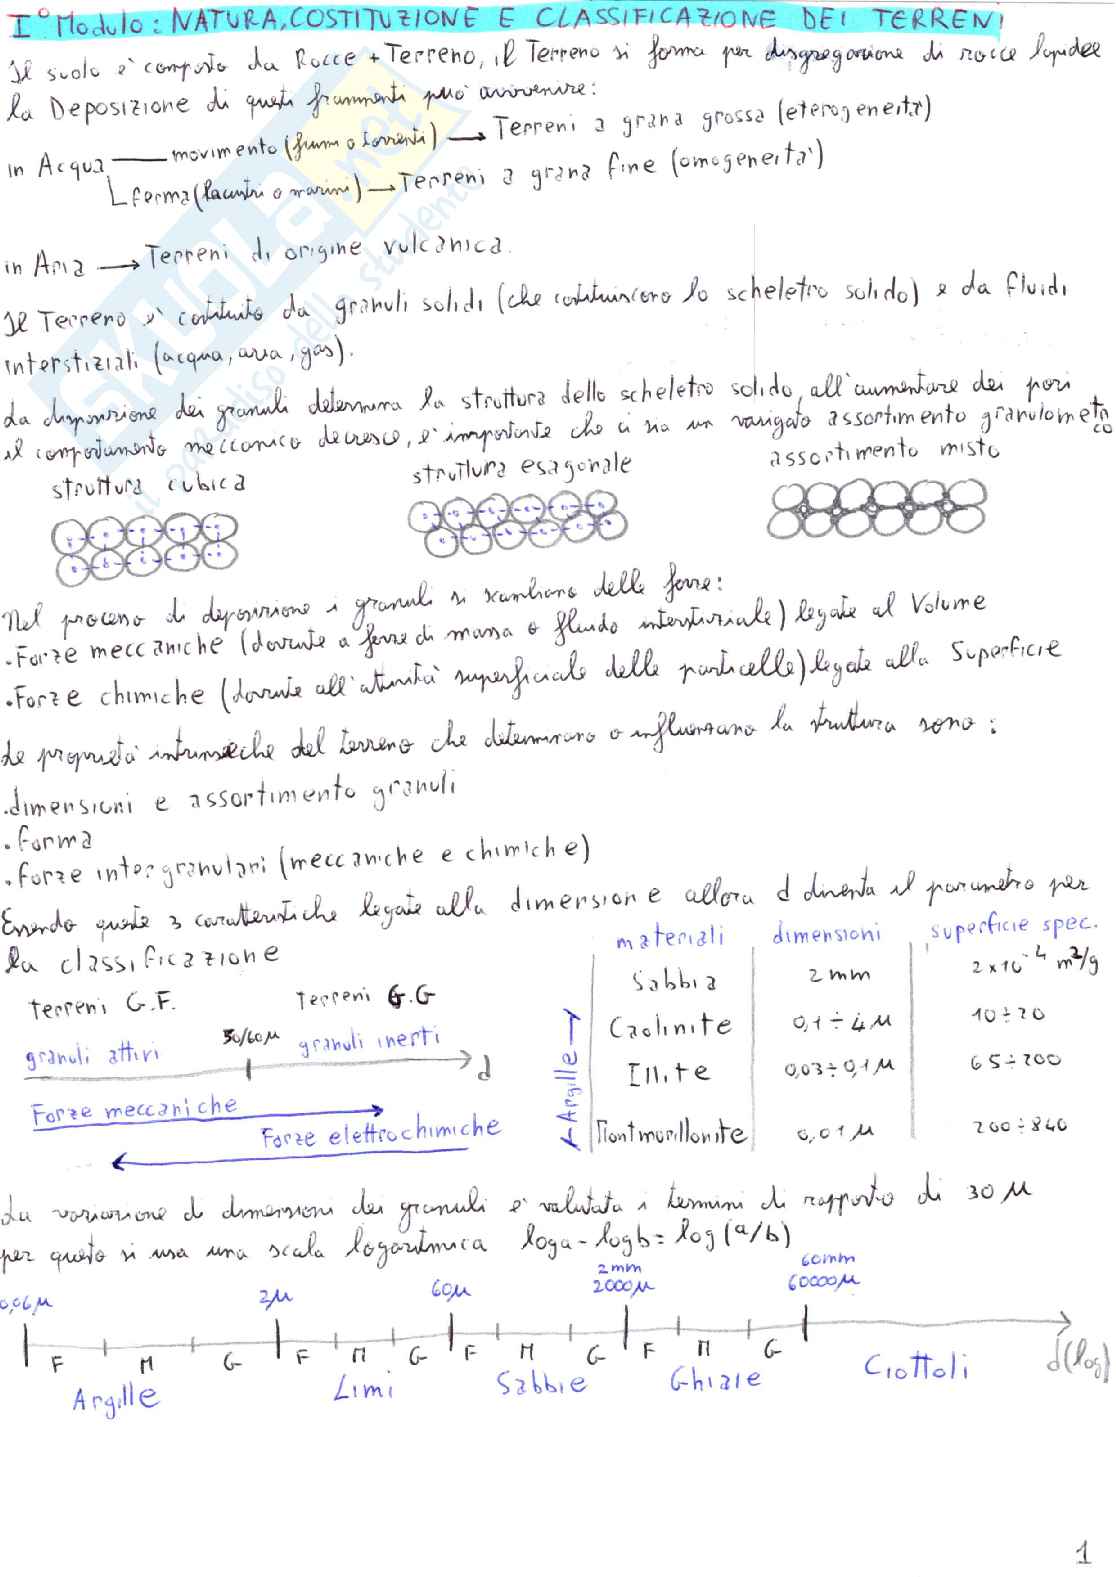 I° Modulo: NATURA, COSTITUZIONE E CLASSIFICAZIONE DEI TERRENI
Il suolo è composto da Rocce + Terreno, il Terreno si forma per disgregazione di rocce lapidee
la Deposizione di questi frammenti può avvenire:
in Acqua movimento (fiumi o torrenti) → Terreni a grana grossa (eterogeneità)
ferma (lacustri o marini) → Terreni a grana fine (omogeneità)
in Aria → Terreni di origine vulcanica.
Il Terreno è costituito da granuli solidi (che costituiscono lo scheletro solido) e da fluidi
interstiziali (acqua, aria, gas).
La disposizione dei granuli determina la struttura dello scheletro solido, all'aumentare dei pori
il comportamento meccanico decresce, è importante che ci sia un variegato assortimento granulometrico
struttura cubica
struttura esagonale
assortimento misto
Nel processo di deposizione i granuli si scambiano delle forze:
. Forze meccaniche (dovute a forze di massa o fluido interstiziale) legate al Volume
. Forze chimiche (dovute all'attività superficiale delle particelle) legate alla Superficie
Le proprietà intrinseche del terreno che determinano o influenzano la struttura sono:
. dimensioni e assortimento granuli
. forma
. forze intergranulari (meccaniche e chimiche)
Essendo queste 3 caratteristiche legate alla dimensione allora d diventa il parametro per
la classificazione
terreni G.F. terreni G.G
30/60 μ
granuli attivi granuli inerti
d
Forze meccaniche
Forze elettrochimiche
materiali dimensioni superficie spec.
Sabbia 2 mm 2 x 10⁻⁴ m²/g
Caolinite 0,1 ÷ 4 μ 10 ÷ 20
Illite 0,03 ÷ 0,1 μ 65 ÷ 200
Montmorillonite 0,01 μ 200 ÷ 840
← Argille →
La variazione di dimensioni dei granuli è valutata i termini di rapporto di 30 μ
per questo si usa una scala logaritmica loga - logb = log (a/b)
0,06 μ 2μ 60μ 2mm 2000μ 60mm 60000μ
F M G F M G F M G F M G
Argille Limi Sabbie Ghiaie Ciottoli d(log)
1
SKUOLA.net
il paradiso dello studente